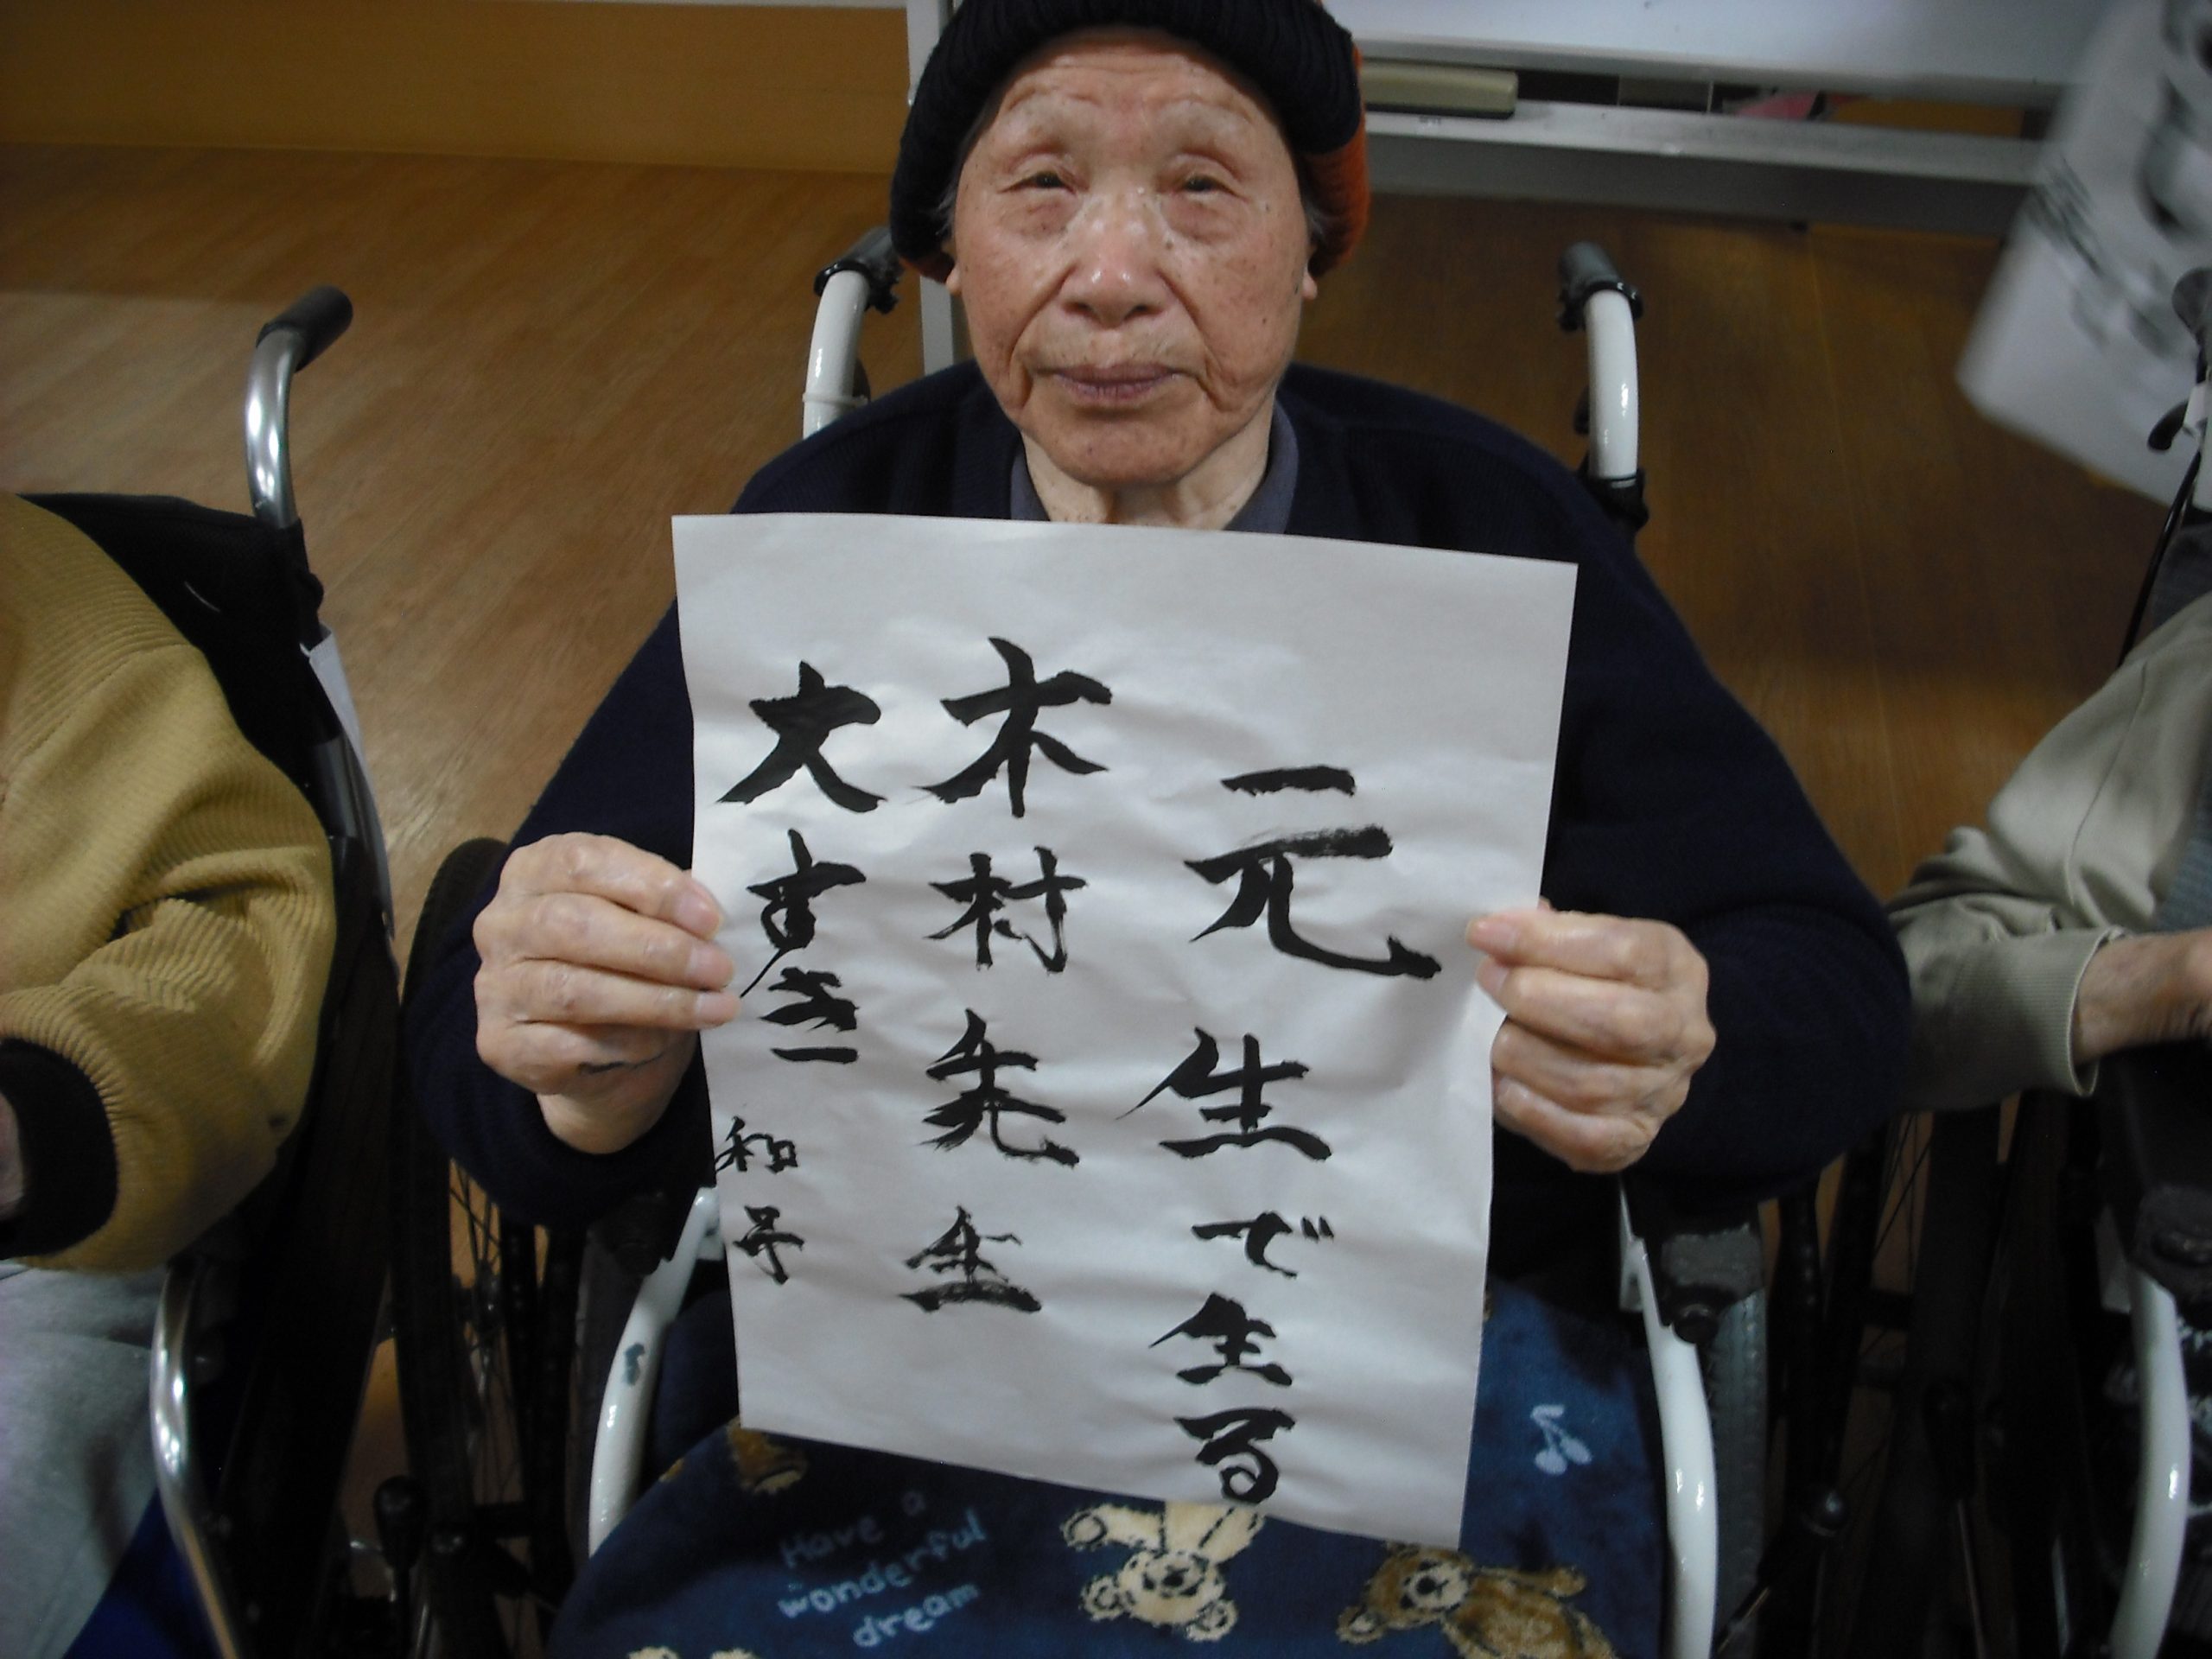 元生で生る
木村先生
大すき一
和子
Have a
wonderful
dream